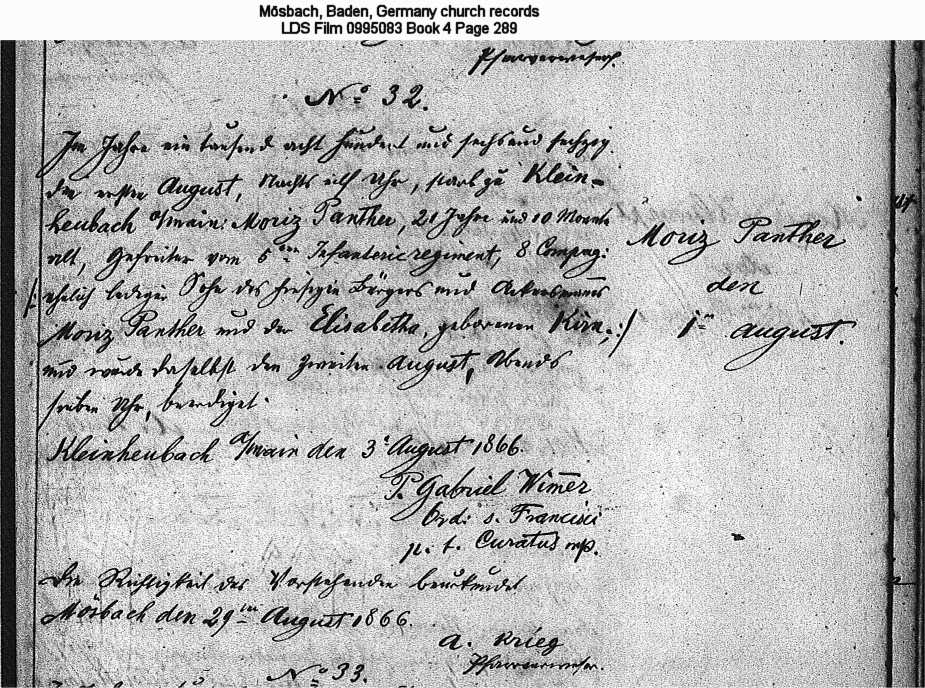 Mösbach, Baden, Germany church records
LDS Film 0995083 Book 4 Page 289
Pfarrverweser.
No 32.
Im Jahre ein tausend acht hundert und sechs und sechzig
den ersten August, Nachts eilf Uhr, starb zu Klein=
heubach a/main: Moriz Panther, 21 Jahre und 10 Monate
alt, Gefreiter vom 5ten Infanterieregiment, 8 Compag:
/: ehelich lediger Sohn des hiesigen Bürgers und Ackersmanns
Moriz Panther und der Elisabetha, geborenen Kirn, :/
und wurde daselbst den zweiten August, Abends
sieben Uhr, beerdiget.
Kleinheubach a/main den 3t August 1866.
P. Gabriel Wimer
Ord: s. Francisci
p. t. Curatus mp.
Die Richtigkeit des Vorstehenden beurkundet
Mösbach den 29ten August 1866.
A. Krieg
Pfarrverweser.
No 33.
Moriz Panther
den
1ten August.